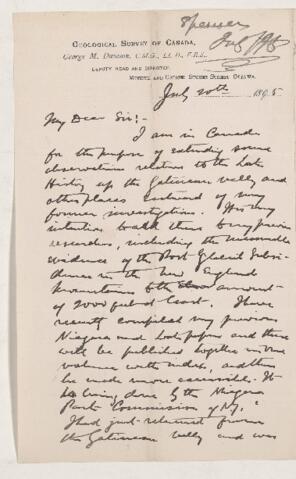 Spencer
July /95
GEOLOGICAL SURVEY OF CANADA,
George M. Dawson, C.M.G., LL.D., F.R.S.,
DEPUTY HEAD AND DIRECTOR.
SUSSEX STREET OTTAWA.
July 20th 1895
My Dear Sir:-
I am in Canada
for the purpose of extending some
observations relating to the late
History of the Gatineau valley and
other places eastward of my
former investigations.
intention to add these to my previous
researches, including the
evidence of the Post Glacial Subsi-
dences in the New England
Mountains to the amount
of 2000 feet at least. I have
recently compiled my previous
Niagara and Lake papers and these
will be published together in one
volume with index, and thus
be made more accessible. It
is being done by the Niagara
Park Commission of N.Y.
I had just returned from
the Gatineau valley and was